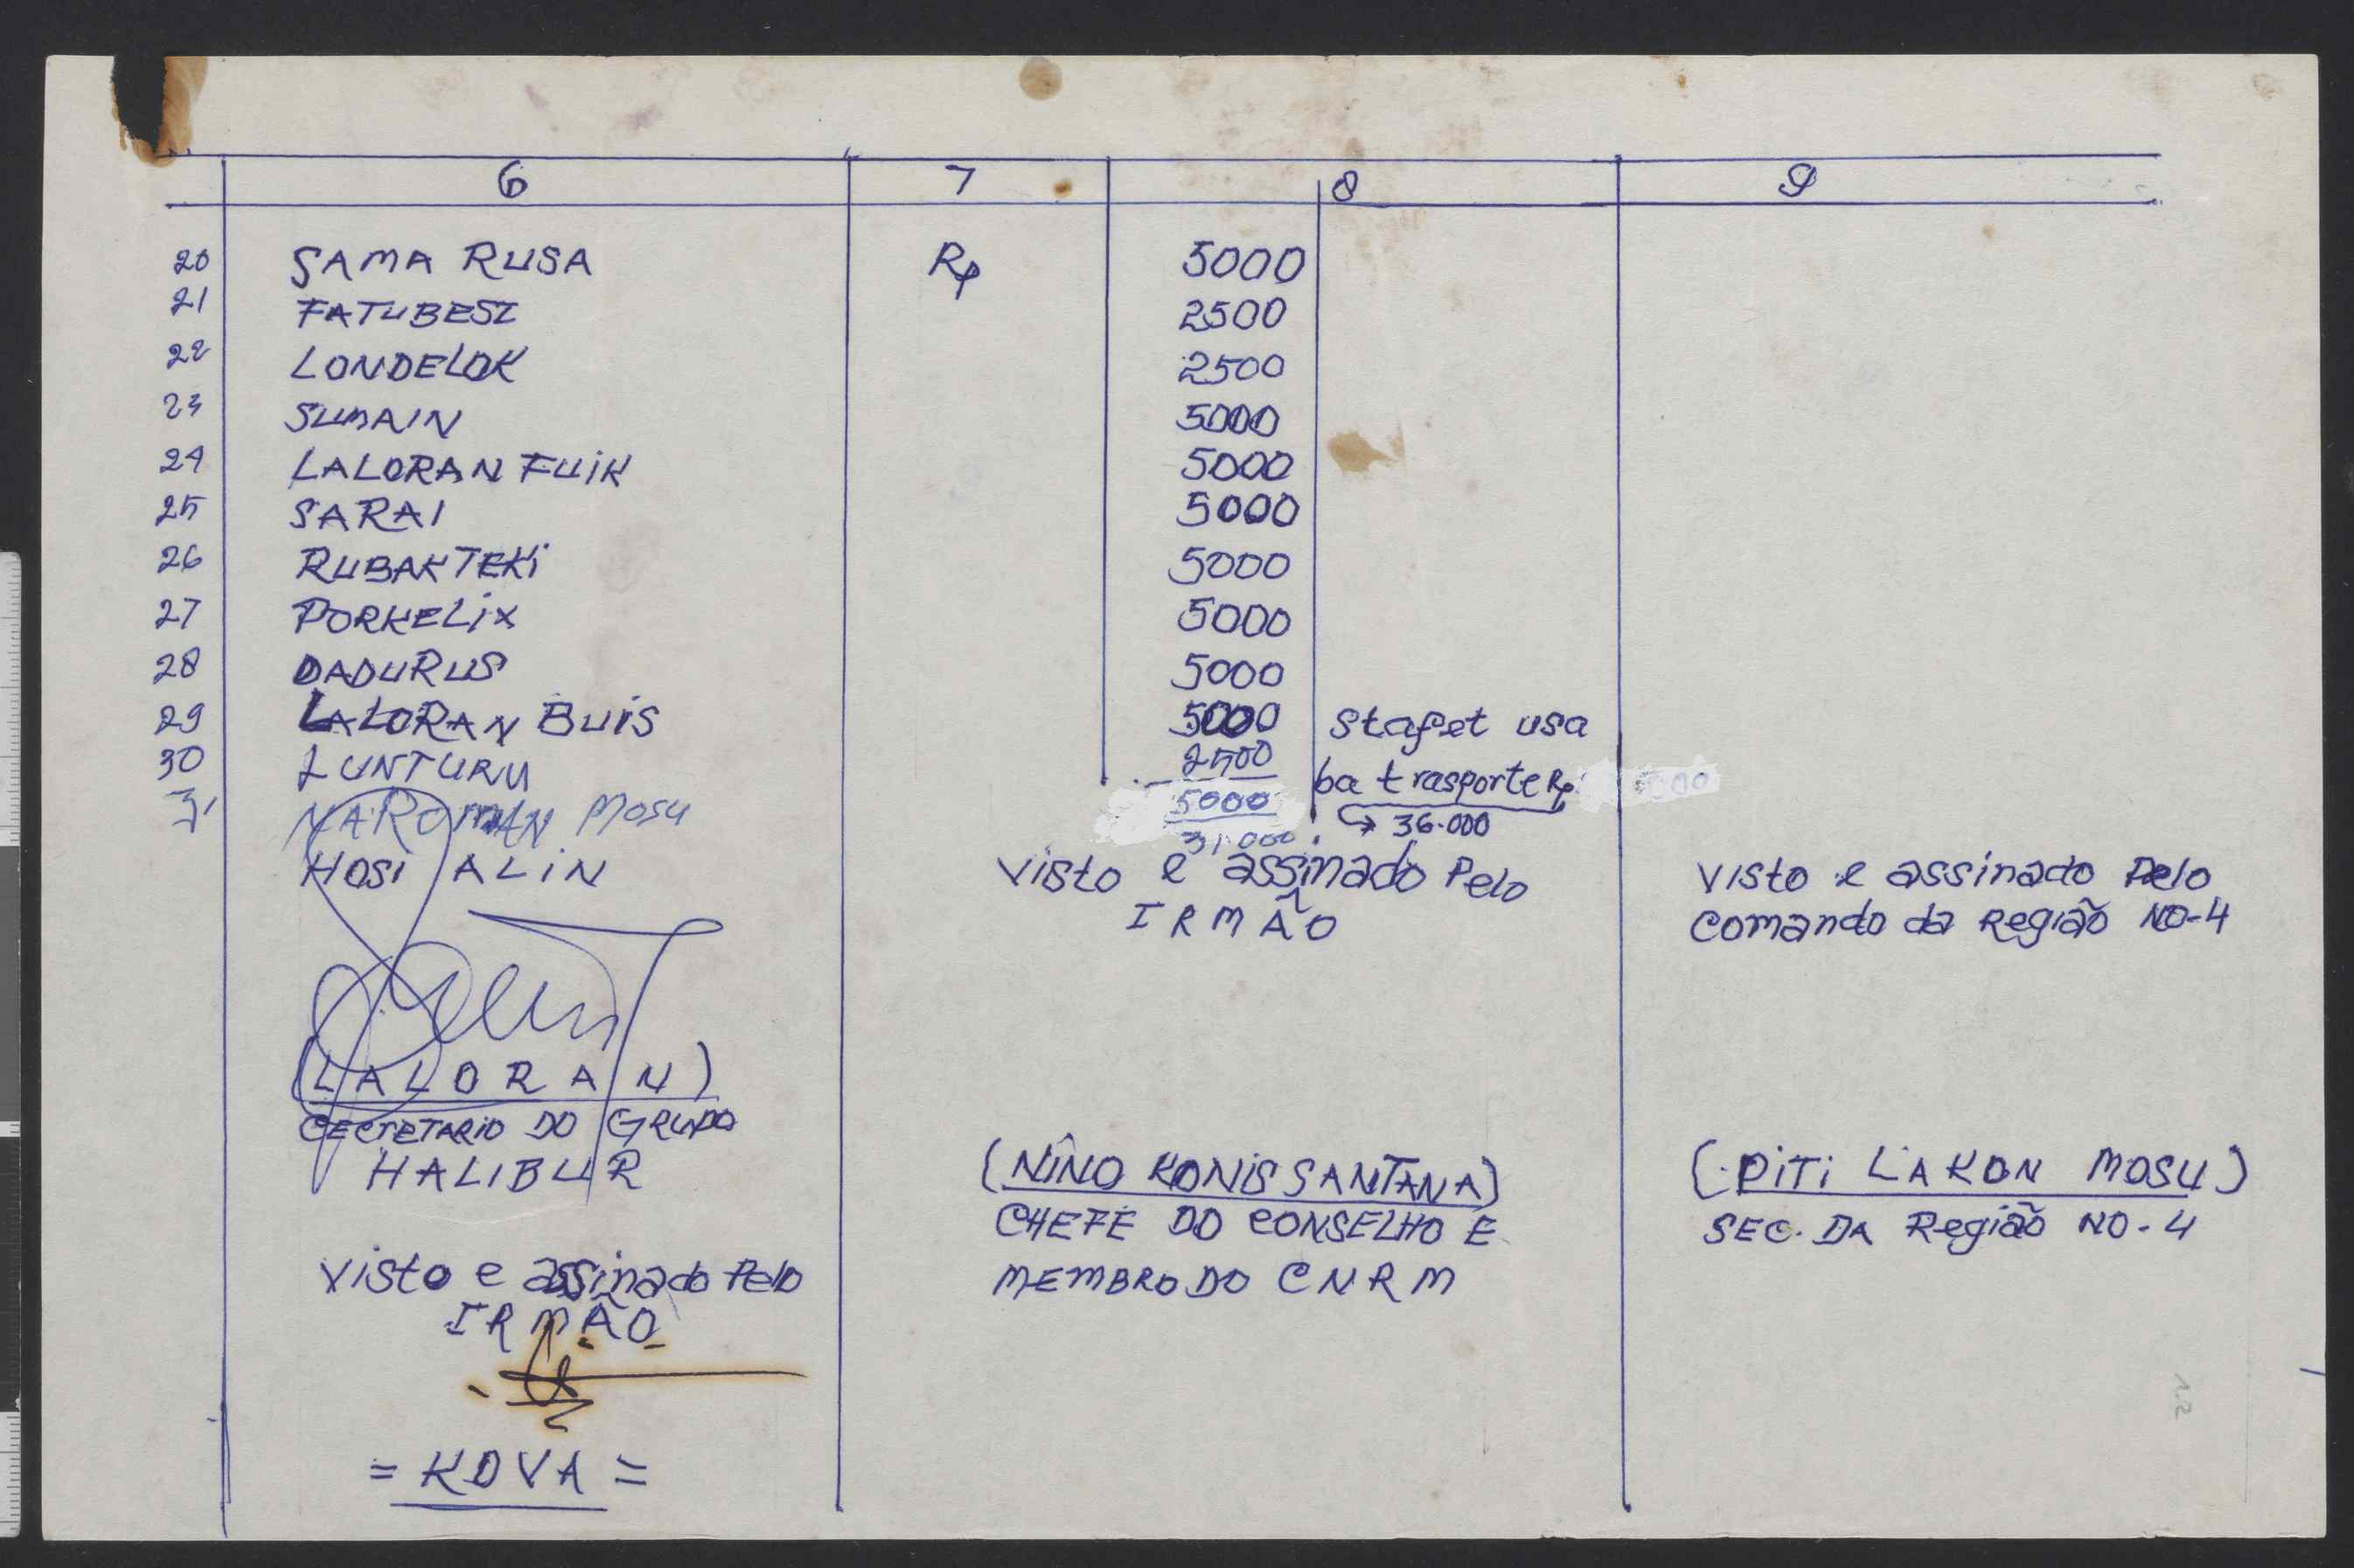 6 7 8 9
20 SAMA RUSA Rp 5000
21 FATUBESI 2500
22 LONDELOK 2500
23 SUMAIN 5000
24 LALORAN FUIK 5000
25 SARAI 5000
26 RUBAK TEKI 5000
27 PORKELIX 5000
28 DADURUS 5000
29 LALORAN BUIS 5000 Stafet usa
30 LUNTURU 2500 ba trasporte Rp
31 NAROMAN MOSU 5000
31.000 36.000
HOSI ALIN
Visto e assinado Pelo
IRMÃO
Visto e assinado Pelo
Comando da Região NO-4
(LALORAN)
CECTETARIO DO GRUPO
HALIBUR
(NÎNO KONIS SANTANA)
CHEFE DO CONSELHO E
MEMBRO DO CNRM
(PITI LAKON MOSU)
SEC. DA Região NO-4
Visto e assinado Pelo
IRMÃO
= KOVA =